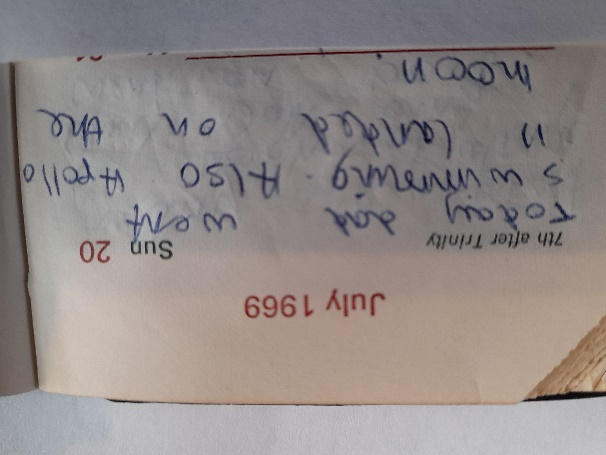 July 1969
7th after Trinity Sun 20
Today dad went
swimming. Also Apollo
11 landed on the
moon.